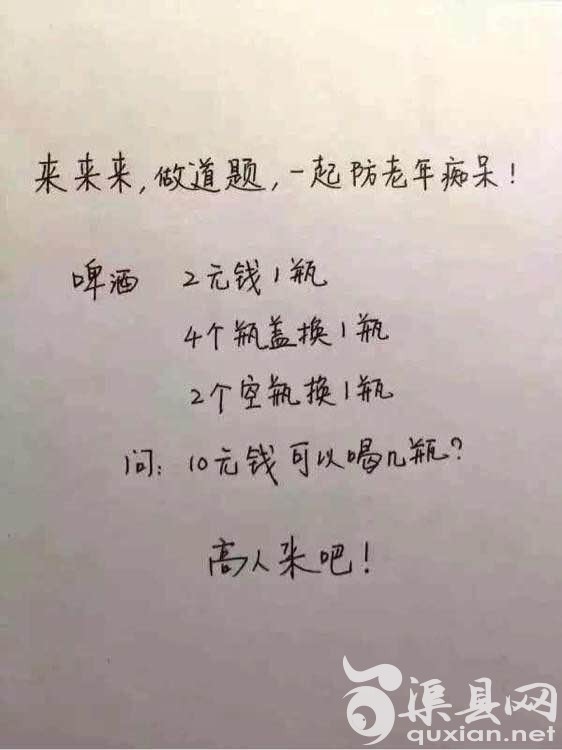 来来来,做道题,一起防老年痴呆!
啤酒 2元钱1瓶
4个瓶盖换1瓶
2个空瓶换1瓶
问:10元钱可以喝几瓶?
高人来吧!
渠县网
quxian.net